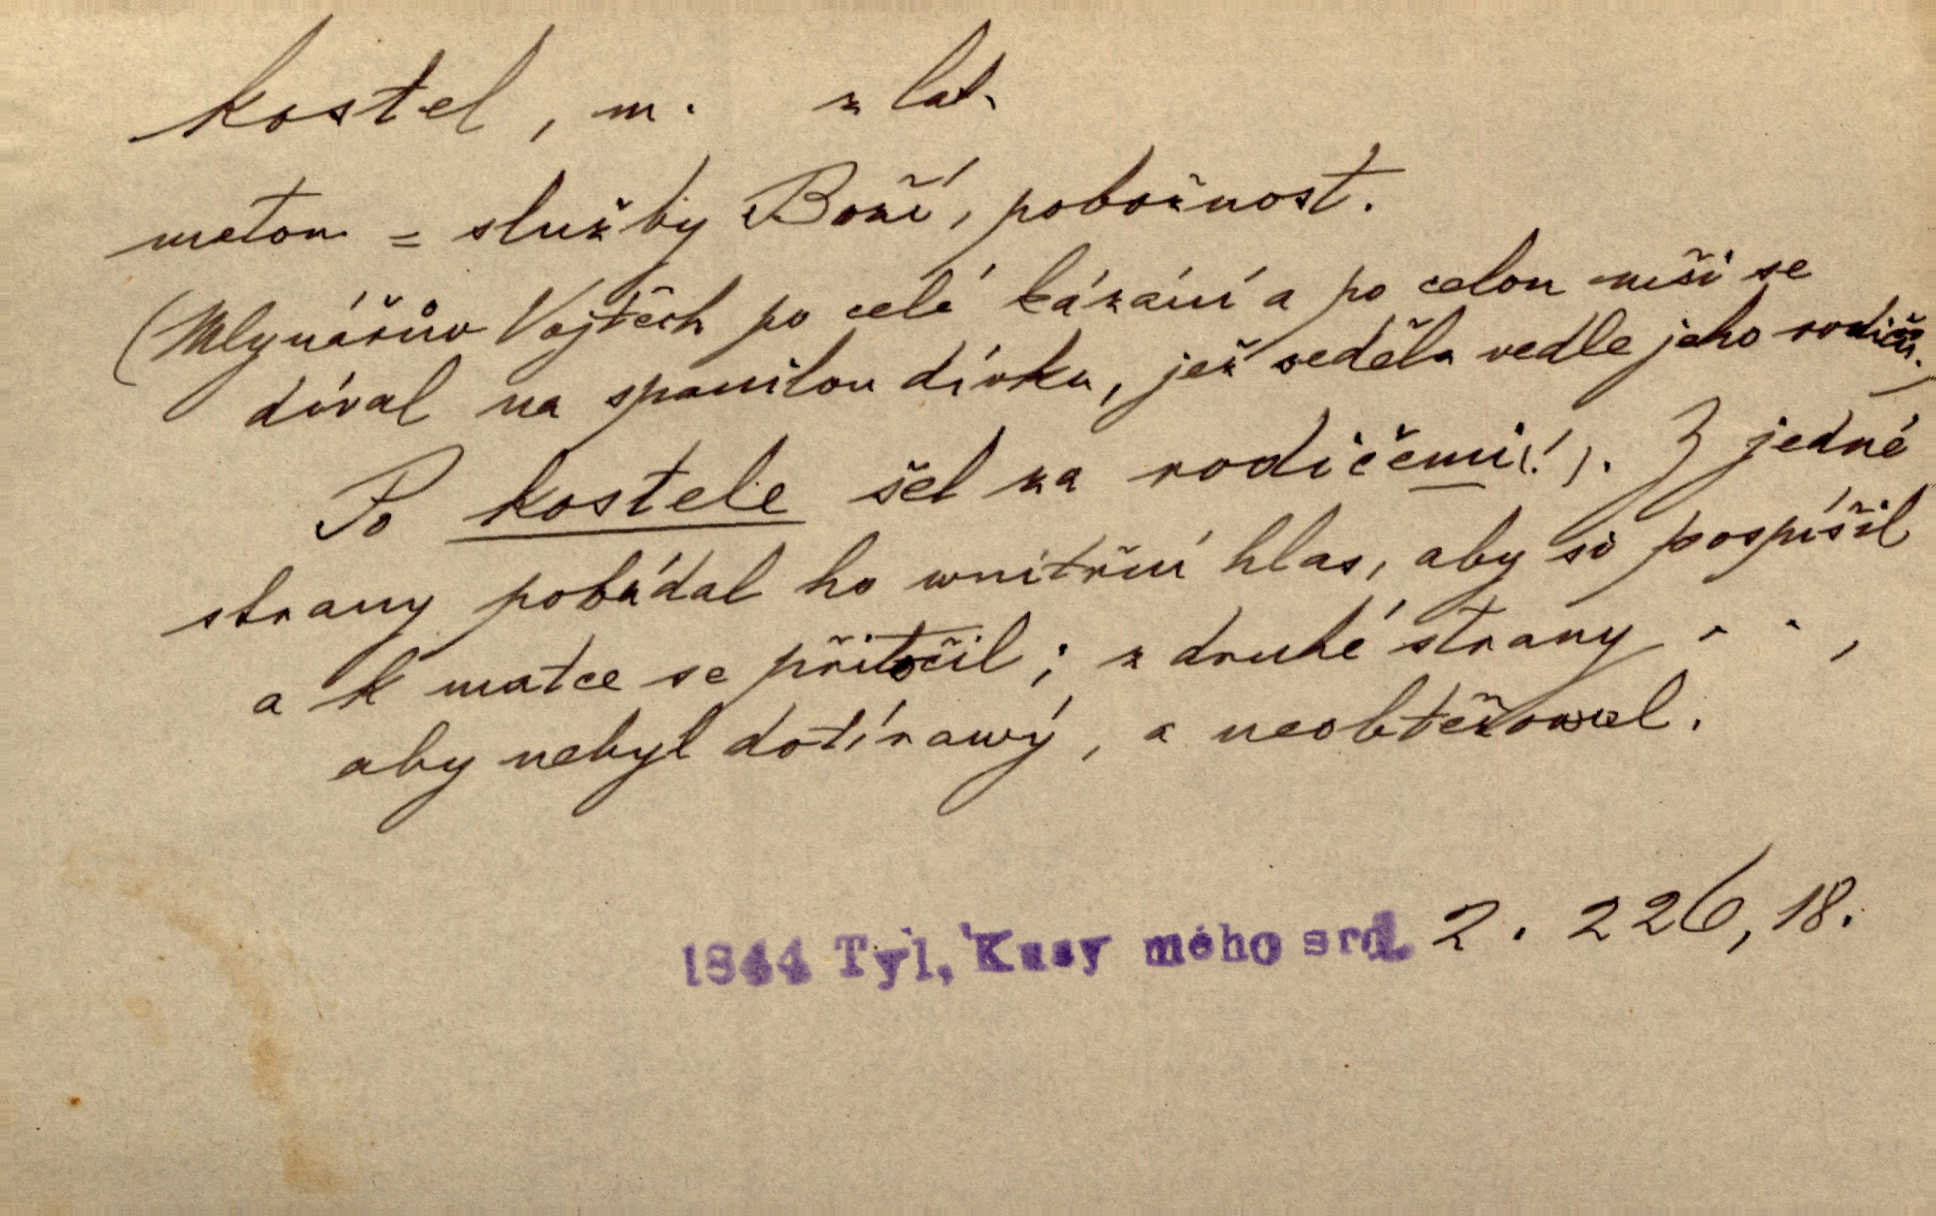 kostel, m. z lat.
meton = služby Boží, pobožnost.
(Mlynářův Vojtěch po celé kázání a po celou mši se
díval na spanilou dívku, jež seděla vedle jeho rodičů.)
Po kostele šel za rodičemi(!). Z jedné
strany pobádal ho wnitřní hlas, aby si pospíšil
a k matce se přitočil; z druhé strany . . ,
aby nebyl dotírawý, a neobtěžowal.
1844 Tyl, Kusy mého srd. 2. 226, 18.